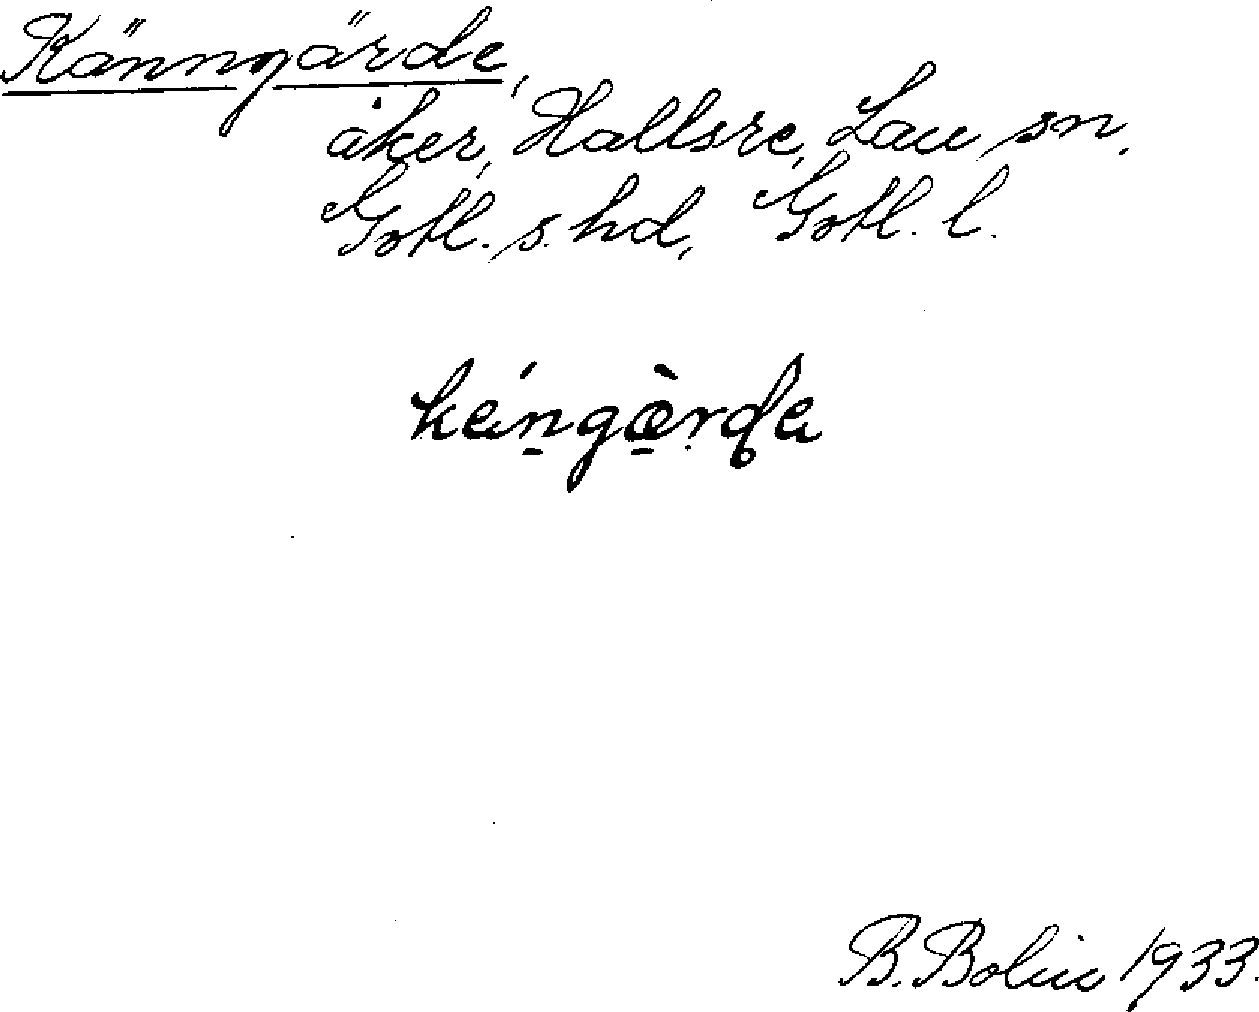 Känngärde,
åker, Hallsre, Lau sn.
Gotl. s. hd, Gotl. l.
B. Bolin 1933.